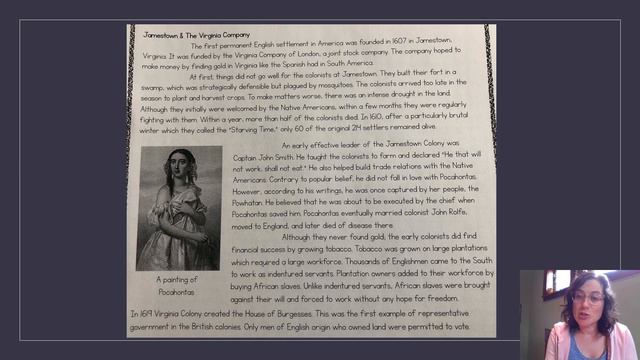 Jamestown & The Virginia Company
The first permanent English settlement in America was founded in 1607 in Jamestown,
Virginia. It was funded by the Virginia Company of London, a joint stock company. The company hoped to
make money by finding gold in Virginia like the Spanish had in South America.
At first, things did not go well for the colonists at Jamestown. They built their fort in a
swamp, which was strategically defensible but plagued by mosquitoes. The colonists arrived too late in the
season to plant and harvest crops. To make matters worse, there was an intense drought in the land.
Although they initially were welcomed by the Native Americans, within a few months they were regularly
fighting with them. Within a year, more than half of the colonists died. In 1610, after a particularly brutal
winter which they called the "Starving Time," only 60 of the original 214 settlers remained alive.
An early effective leader of the Jamestown Colony was
Captain John Smith. He taught the colonists to farm and declared "He that will
not work, shall not eat." He also helped build trade relations with the Native
Americans. Contrary to popular belief, he did not fall in love with Pocahontas.
However, according to his writings, he was once captured by her people, the
Powhatan. He believed that he was about to be executed by the chief when
Pocahontas saved him. Pocahontas eventually married colonist John Rolfe,
moved to England, and later died of disease there.
Although they never found gold, the early colonists did find
financial success by growing tobacco. Tobacco was grown on large plantations
which required a large workforce. Thousands of Englishmen came to the South
to work as indentured servants. Plantation owners added to their workforce by
buying African slaves. Unlike indentured servants, African slaves were brought
against their will and forced to work without any hope for freedom.
A painting of
Pocahontas
In 1619 Virginia Colony created the House of Burgesses. This was the first example of representative
government in the British colonies. Only men of English origin who owned land were permitted to vote.